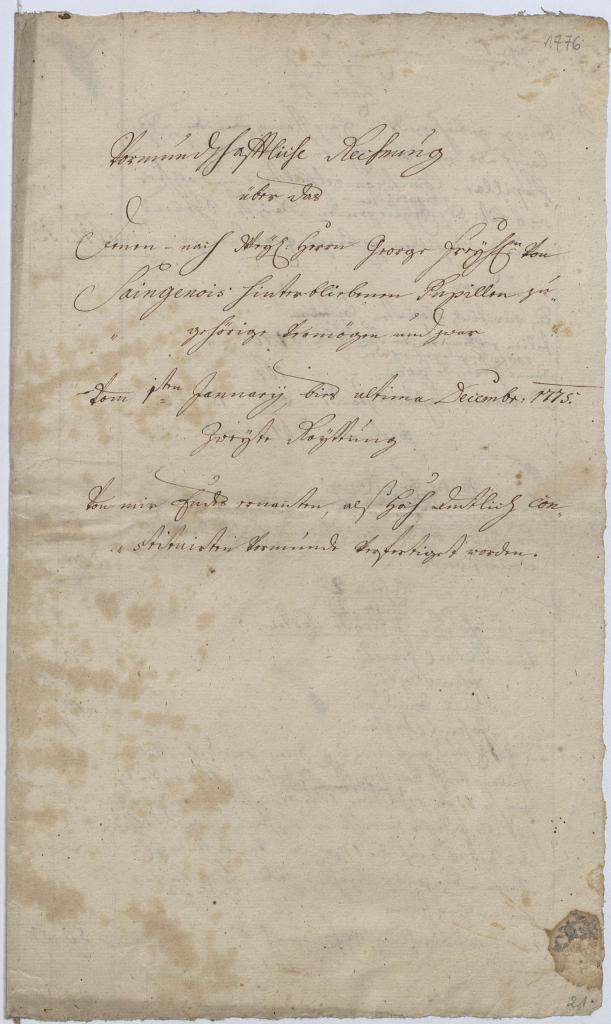 1776
Vormundschafftliche Rechnung
über das
Denen - nach Weyl: Herrn George Freyh:n von
Saingenois hinterbliebenen Pupillen zu-
" gehörige Vermögen und zwar "
Vom 1sten January bies ultima Decembr: 1775.
Zweyte Raÿttung
Von mir Endes ernannten, als Hoch amtlich con-
" stituirten Vormunde verfertiget worden.
21.